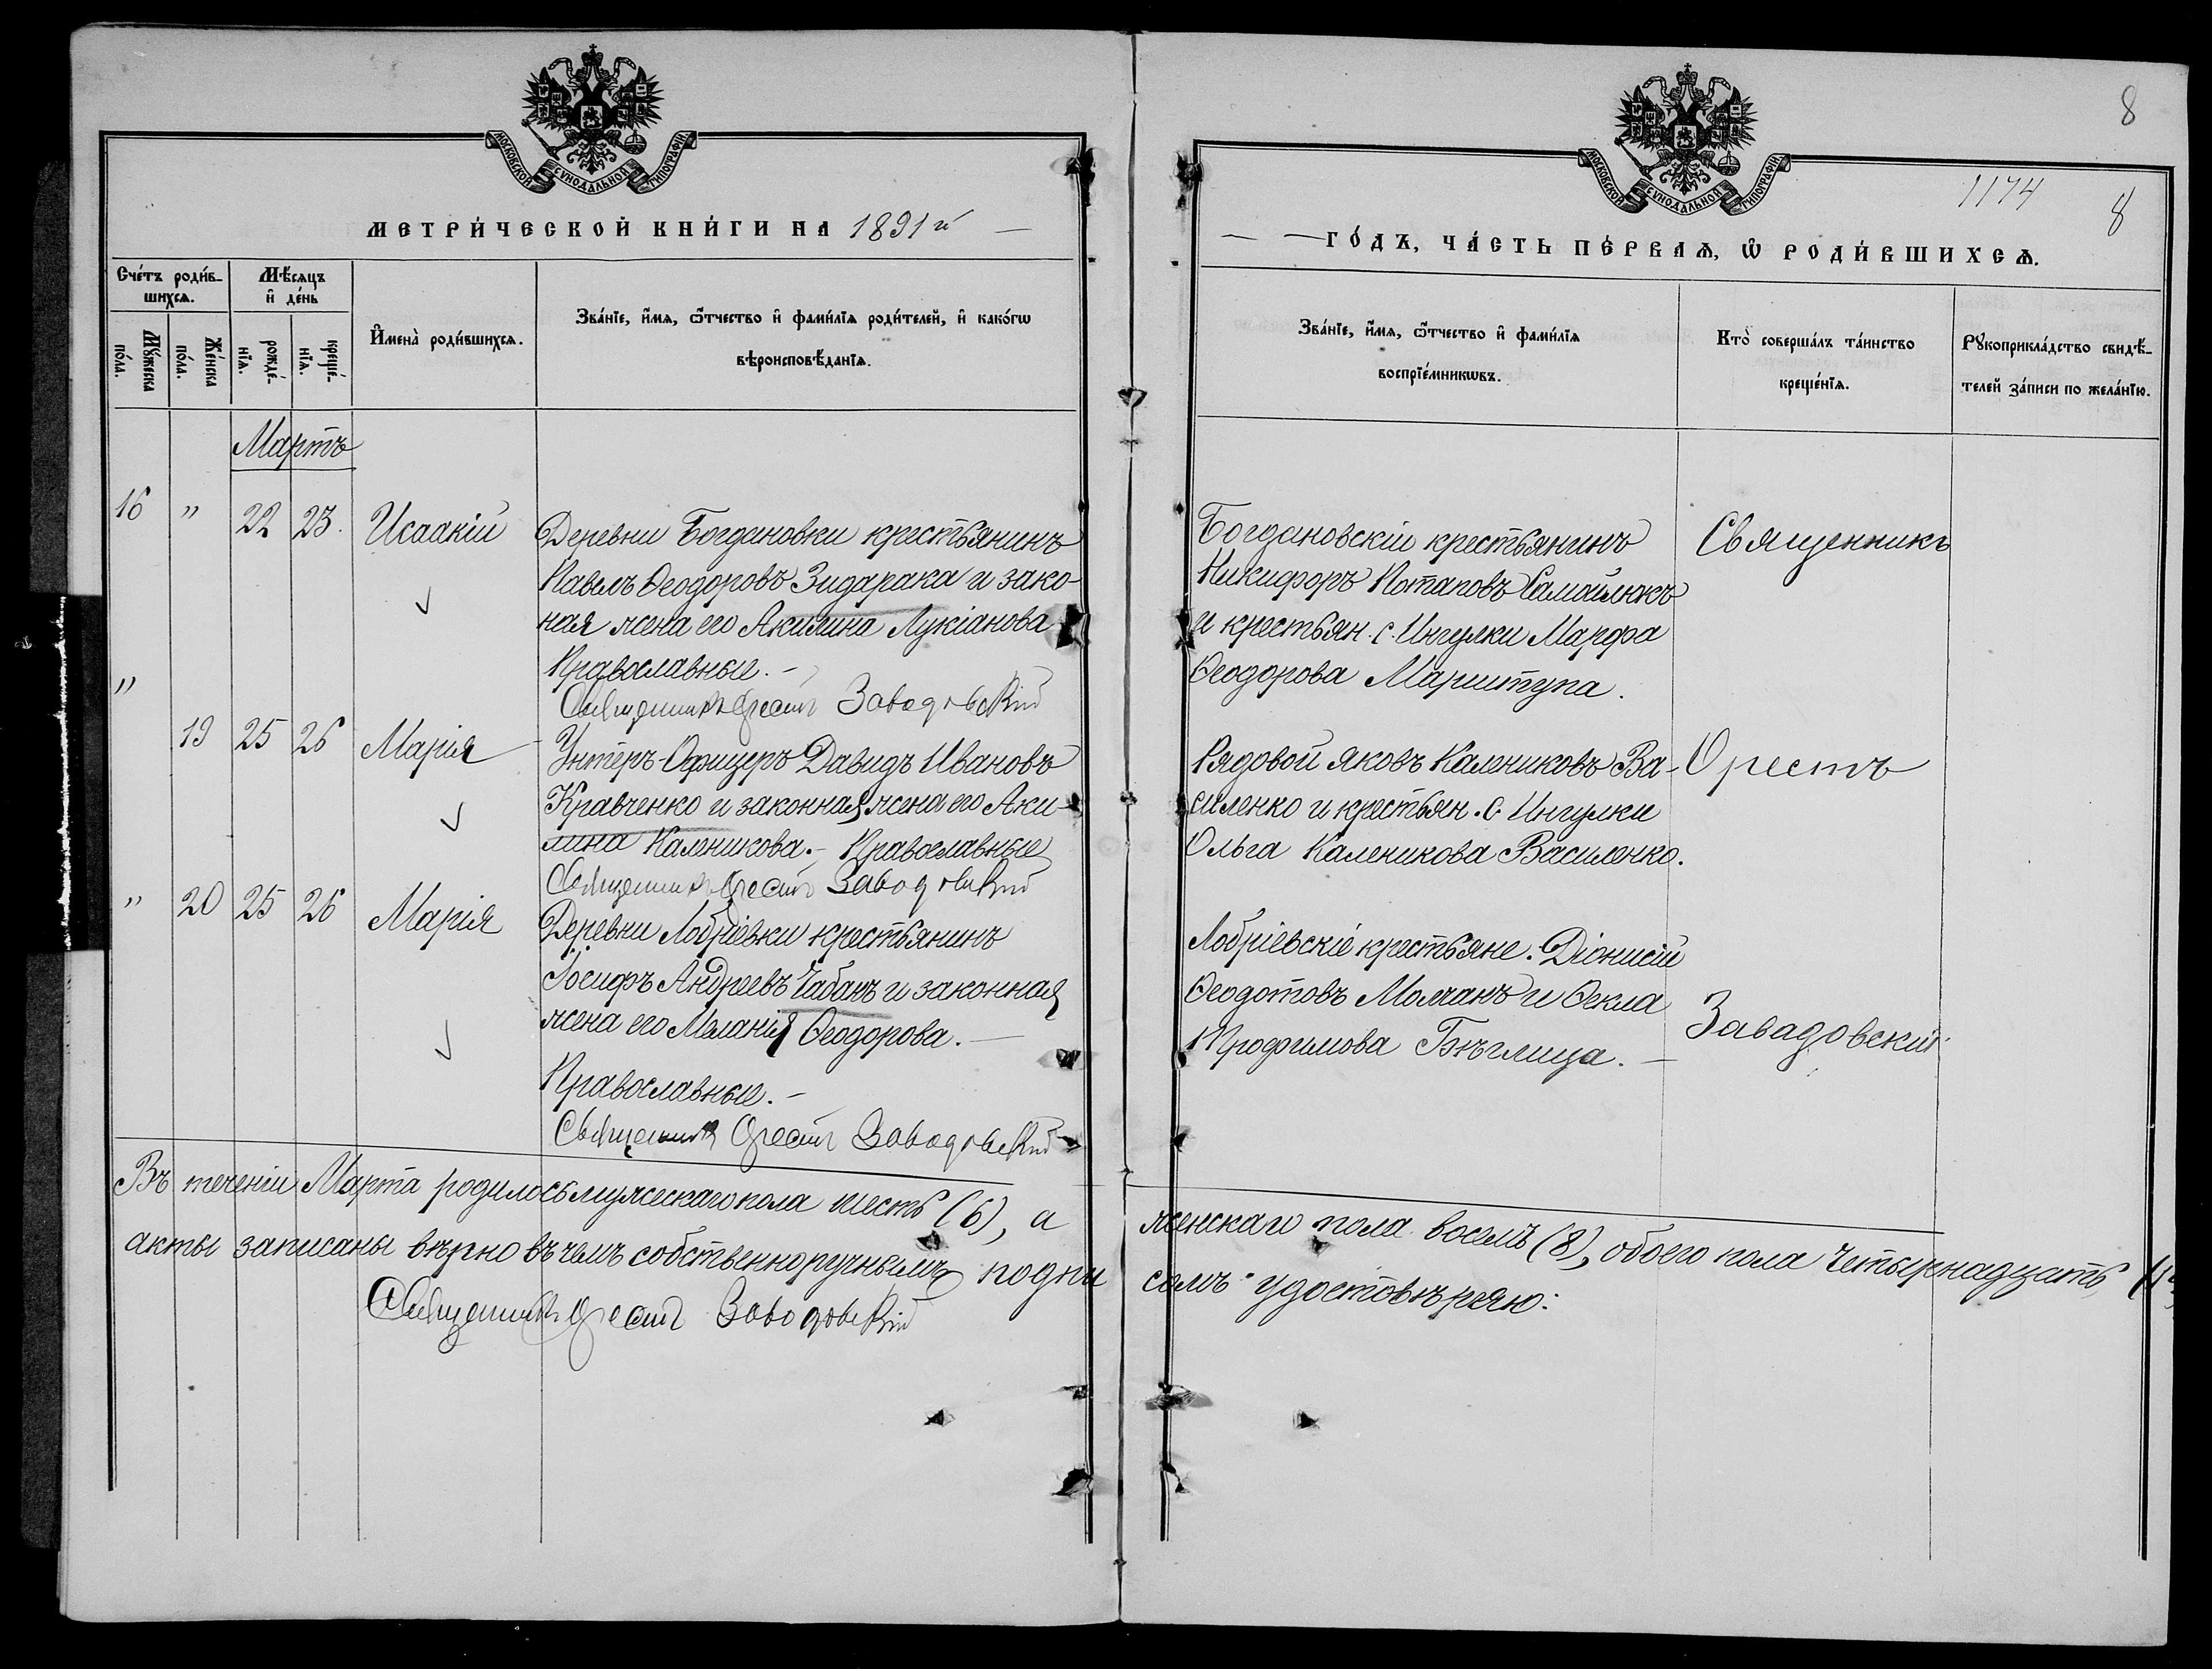 МОСКОВСКОЙ СУНОДАЛЬНОЙ ТИПОГРАФІИ
МЕТРИ́ЧЕСКОЙ КНИ́ГИ НА 1891й
Сче́тъ роди́в-
шихсѧ.
Мѣ́сяцъ
и҆ де́нь
Мꙋ́жеска
по́ла.
Же́нска
по́ла.
рожде́-
нїѧ.
креще́-
нїѧ.
И҆мена̀ роди́вшихсѧ.
Зва́нїе, и҆́мѧ, ѻ҆́тчество и҆ фами́лїѧ роди́телей, и҆ како́гѡ
вѣроисповѣ́данїѧ.
Мартъ
16 " 22 23. Исаакій
Деревни Богдановки крестьянинъ
Павелъ Ѳеодоровъ Зидарака и зако-
ная жена его Акилина Лукіанова
Православные.-
Священникъ Орестъ Заводовскій
"
19 25 26 Марія
Унтеръ-Офицеръ Давидъ Ивановъ
Кравченко и законная жена его Аки-
лина Каленикова.- Православные
Священникъ Орестъ Заводовскій
" 20 25 26 Марія
Деревни Лобріевки крестьянинъ
Іосифъ Андреевъ Чабанъ и законная
жена его Меланія Ѳеодорова.-
Православные.-
Священникъ Орестъ Заводовскій
Въ теченіи Марта родилось мужескаго пола шесть (6), а
акты записаны вѣрно въ чемъ собственноручнымъ подпи
Священникъ Орестъ Заводовскій
8
МОСКОВСКОЙ СУНОДАЛЬНОЙ ТИПОГРАФІИ
1174
8
ГО́ДЪ, ЧА́СТЬ ПЕ́РВАѦ, Ѽ РОДИ́ВШИХСѦ.
Зва́нїе, и҆́мѧ, ѻ҆́тчество и҆ фами́лїѧ
воспрїе́мникѡвъ.
Кто̀ соверша́лъ та́инство
креще́нїѧ.
Рꙋкоприкла́дство свидѣ́-
телей за́писи по жела́нїю.
Богдановскій крестьянинъ
Никифоръ Потаповъ Самойлюкъ
и крестьян. с. Ингулки Марфа
Ѳеодорова Марштупа.
Священникъ
Рядовой Яковъ Калениковъ Ва-
силенко и крестьян. с. Ингулки
Ольга Каленикова Василенко.
Орестъ
Лобріевскіе крестьяне. Діонисій
Ѳеодотовъ Молчанъ и Ѳекла
Трофимова Бѣглица.-
Завадовскій
женскаго пола восемь (8), обоего пола четырнадцать
сомъ удостовѣряю: